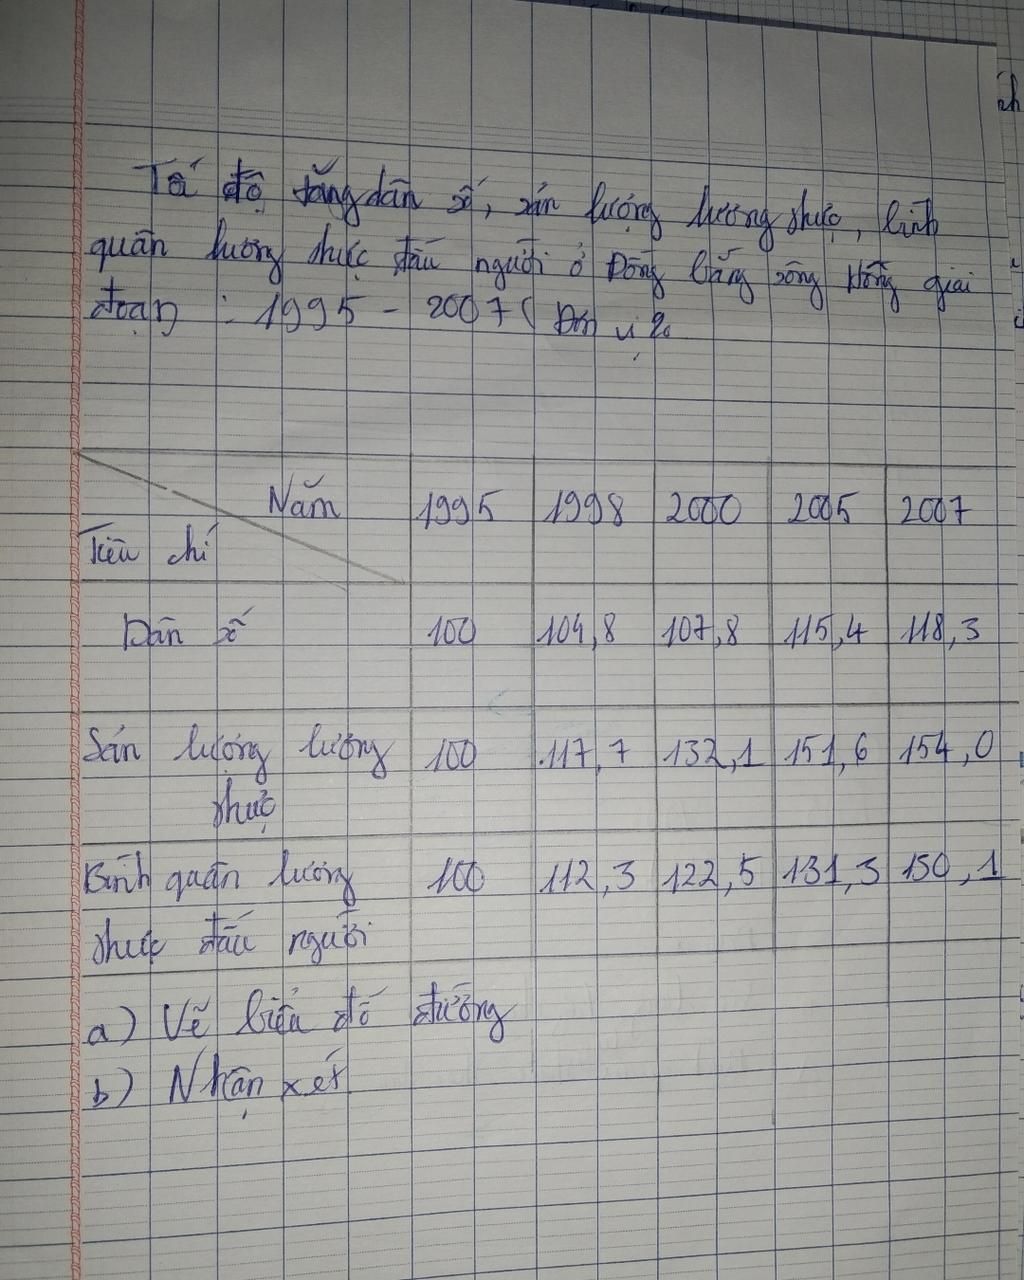 Tố độ tăng dân số, sản lượng lương thực, bình
quân lương thực đầu người ở Đồng bằng sông Hồng giai
đoạn : 1995 - 2007 ( Đơn vị %
Năm 1995 1998 2000 2005 2007
Tiêu chí
Dân số 100 104,8 107,8 115,4 118,3
Sản lượng lương 100 117,7 132,1 151,6 154,0
thực
Bình quân lương 100 112,3 122,5 131,3 150,1
thực đầu người
a) Vẽ biểu đồ đường
b) Nhận xét